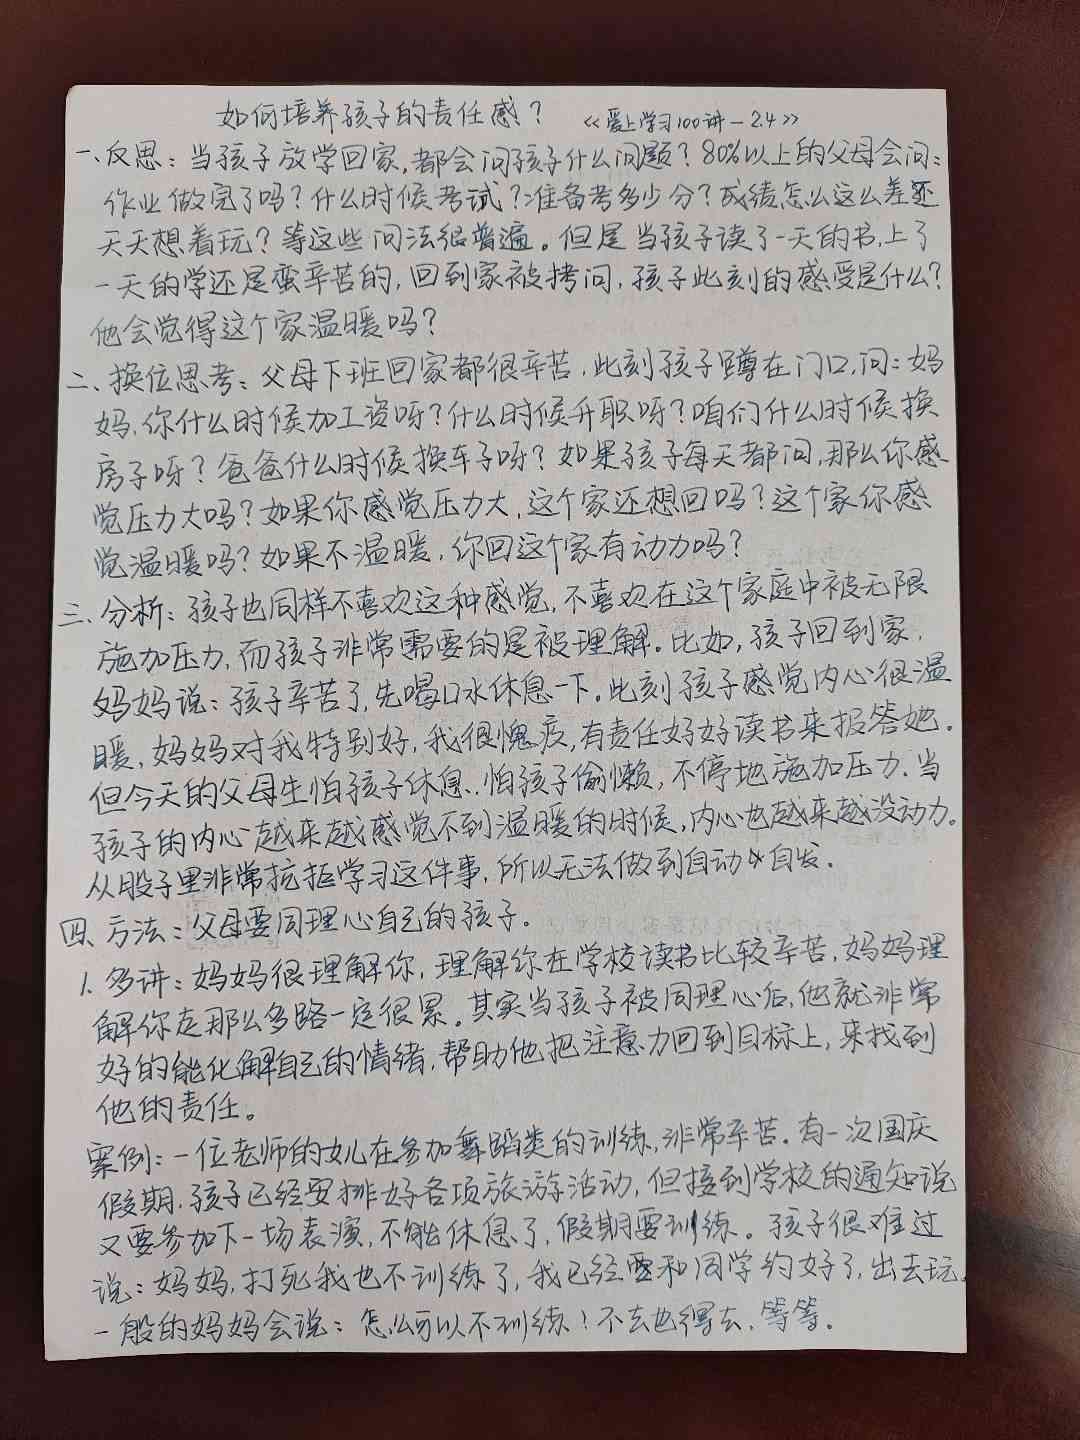 如何培养孩子的责任感？ 《爱上学习100讲－2.4》
一、反思：当孩子放学回家，都会问孩子什么问题？80%以上的父母会问：
作业做完了吗？什么时候考试？准备考多少分？成绩怎么这么差还
天天想着玩？等这些问法很普遍。但是当孩子读了一天的书，上了
一天的学还是蛮辛苦的，回到家被拷问，孩子此刻的感受是什么？
他会觉得这个家温暖吗？
二、换位思考：父母下班回家都很辛苦，此刻孩子蹲在门口，问：妈
妈，你什么时候加工资呀？什么时候升职呀？咱们什么时候换
房子呀？爸爸什么时候换车子呀？如果孩子每天都问，那么你感
觉压力大吗？如果你感觉压力大，这个家还想回吗？这个家你感
觉温暖吗？如果不温暖，你回这个家有动力吗？
三、分析：孩子也同样不喜欢这种感觉，不喜欢在这个家庭中被无限
施加压力，而孩子非常需要的是被理解。比如，孩子回到家，
妈妈说：孩子辛苦了，先喝口水休息一下。此刻孩子感觉内心很温
暖，妈妈对我特别好，我很愧疚，有责任好好读书来报答她。
但今天的父母生怕孩子休息、怕孩子偷懒，不停地施加压力，当
孩子的内心越来越感觉不到温暖的时候，内心也越来越没动力。
从股子里非常抗拒学习这件事，所以无法做到自动自发。
四、方法：父母要同理心自己的孩子。
1. 多讲：妈妈很理解你，理解你在学校读书比较辛苦，妈妈理
解你走那么多路一定很累。其实当孩子被同理心后，他就非常
好的能化解自己的情绪，帮助他把注意力回到目标上，来找到
他的责任。
案例：一位老师的女儿在参加舞蹈类的训练，非常辛苦。有一次国庆
假期，孩子已经安排好各项旅游活动，但接到学校的通知说
又要参加下一场表演，不能休息了，假期要训练。孩子很难过
说：妈妈，打死我也不训练了，我已经和同学约好了，出去玩。
一般的妈妈会说：怎么可以不训练！不去也得去，等等。